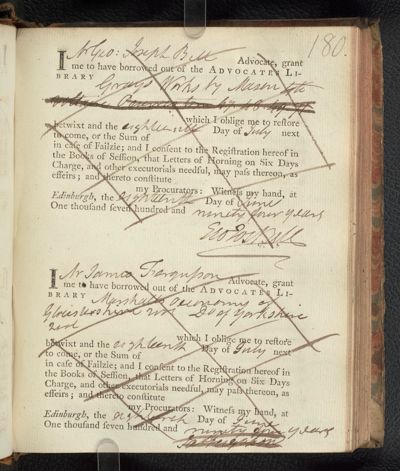 180.
I Mr Geo: Joseph Bell Advocate, grant
me to have borrowed out of the ADVOCATES LI-
BRARY Gray's Works by Mason
which I oblige me to restore
betwixt and the eighteenth Day of July next
to come, or the Sum of
in case of Failzie; and I consent to the Registration hereof in
the Books of Session, that Letters of Horning on Six Days
Charge, and other executorials needful, may pass thereon, as
effeirs; and thereto constitute
my Procurators: Witness my hand, at
Edinburgh, the eighteenth Day of June
One thousand seven hundred and ninety four years
Geo Jos Bell
I Mr James Ferguson Advocate, grant
me to have borrowed out of the ADVOCATES LI-
BRARY Marshall's oeconomy of
Gloucestershire 2 vols Do of Yorkshire
2 vol
which I oblige me to restore
betwixt and the eighteenth Day of July next
to come, or the Sum of
in case of Failzie; and I consent to the Registration hereof in
the Books of Session, that Letters of Horning on Six Days
Charge, and other executorials needful, may pass thereon, as
effeirs; and thereto constitute
my Procurators: Witness my hand, at
Edinburgh, the eighteenth Day of June
One thousand seven hundred and ninety four years